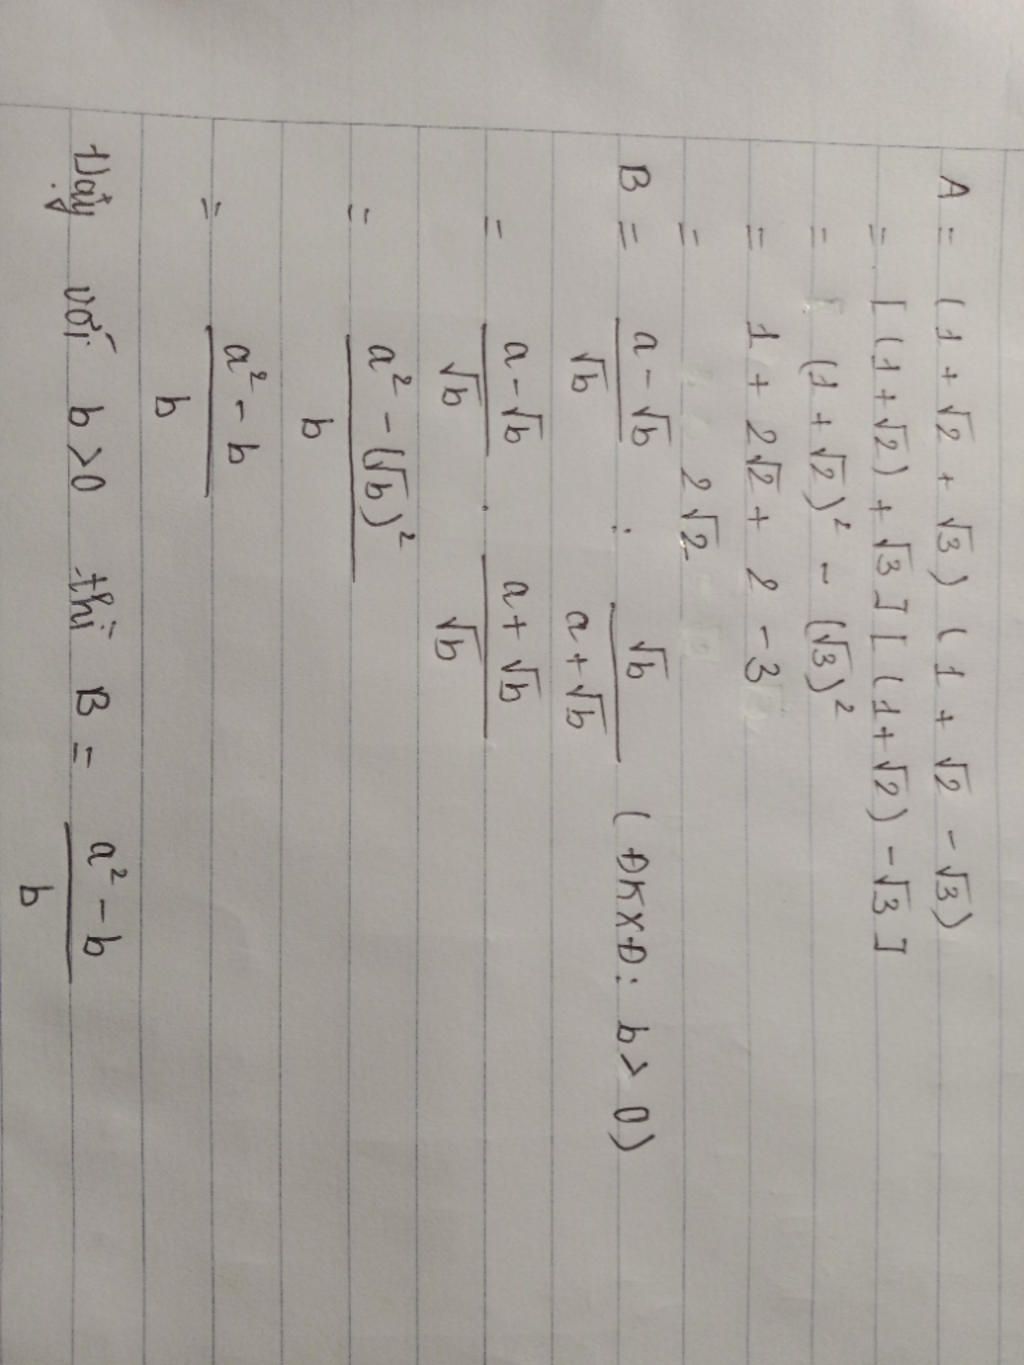 A = (1 + √2 + √3) (1 + √2 - √3)
= [(1 + √2) + √3] [(1 + √2) - √3]
= (1 + √2)² - (√3)²
= 1 + 2√2 + 2 - 3
= 2√2
B = (a - √b)/√b : √b/(a + √b) (ĐKXĐ: b > 0)
= (a - √b)/√b . (a + √b)/√b
= (a² - (√b)²)/b
= (a² - b)/b
Vậy với b > 0 thì B = (a² - b)/b